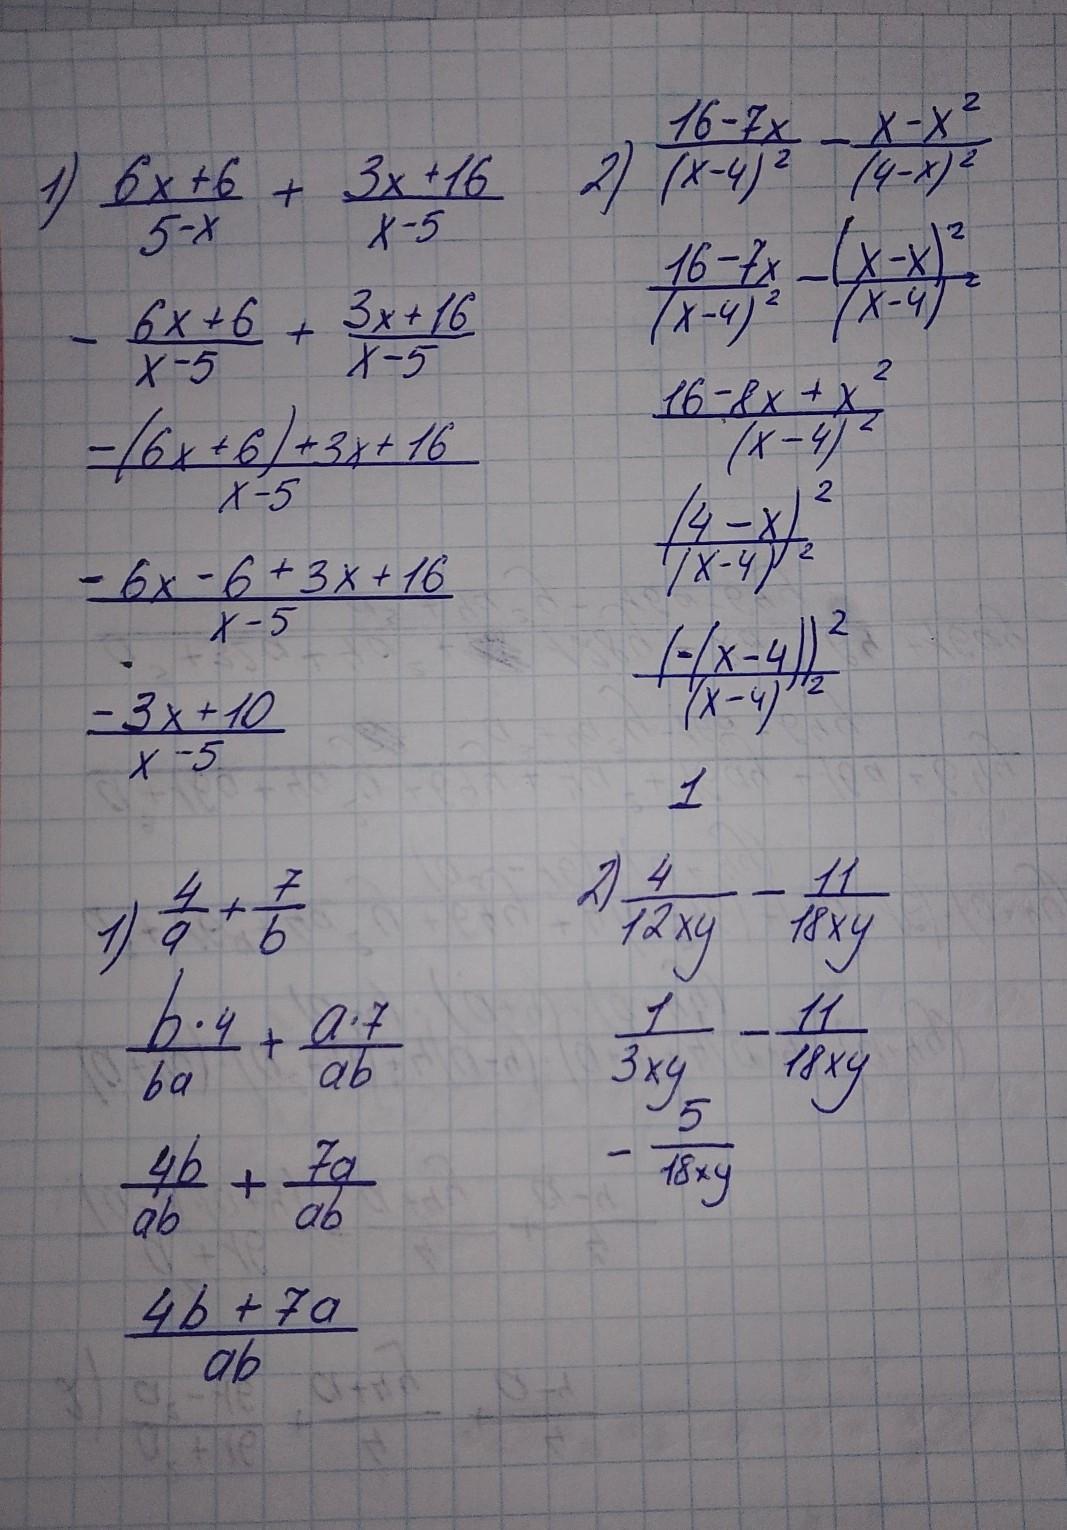 1) (6x+6)/(5-x) + (3x+16)/(x-5)
- (6x+6)/(x-5) + (3x+16)/(x-5)
(-(6x+6)+3x+16)/(x-5)
(-6x-6+3x+16)/(x-5)
(-3x+10)/(x-5)
2) (16-7x)/(x-4)² - (x-x²)/(4-x)²
(16-7x)/(x-4)² - (x-x)²/(x-4)²
(16-8x+x²)/(x-4)²
(4-x)²/(x-4)²
(-(x-4))²/(x-4)²
1
1) 4/a + 7/b
(b·4)/(ba) + (a·7)/(ab)
4b/ab + 7a/ab
(4b+7a)/ab
2) 4/(12xy) - 11/(18xy)
1/(3xy) - 11/(18xy)
- 5/(18xy)